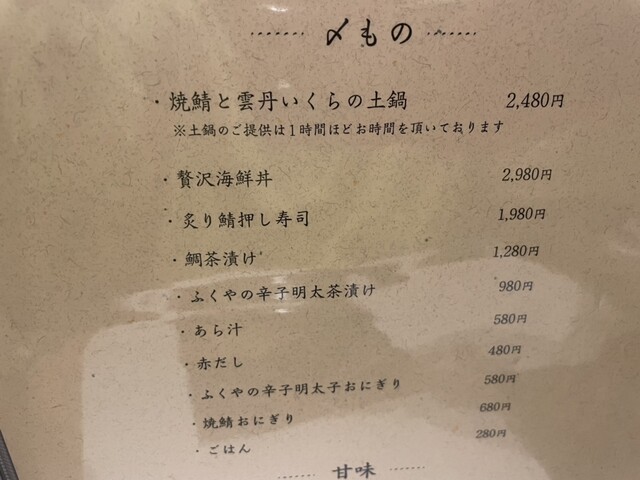 〆もの
・焼鯖と雲丹いくらの土鍋 2,480円
※土鍋のご提供は1時間ほどお時間を頂いております
・贅沢海鮮丼 2,980円
・炙り鯖押し寿司 1,980円
・鯛茶漬け 1,280円
・ふくやの辛子明太茶漬け 980円
・あら汁 580円
・赤だし 480円
・ふくやの辛子明太子おにぎり 580円
・焼鯖おにぎり 680円
・ごはん 280円
甘味